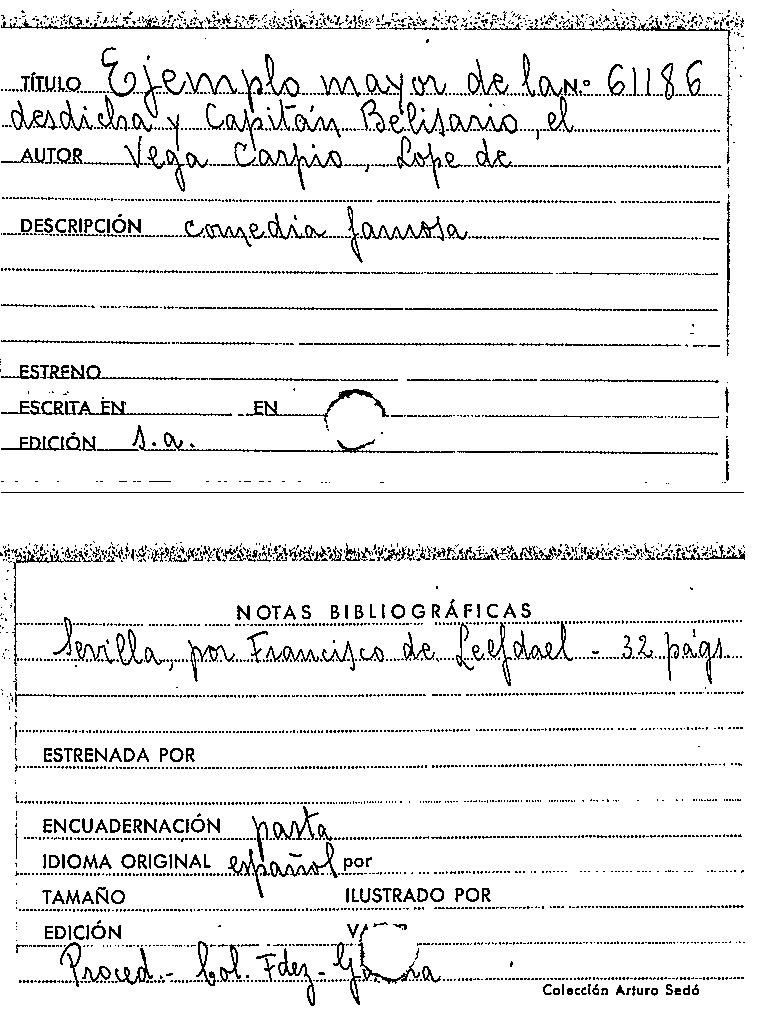 TÍTULO Ejemplo mayor de la N.º 61186
desdicha y Capitán Belisario, el
AUTOR Vega Carpio, Lope de
DESCRIPCIÓN comedia famosa
ESTRENO
ESCRITA EN EN
EDICIÓN s.a.
NOTAS BIBLIOGRÁFICAS
Sevilla, por Francisco de Leefdael - 32 págs.
ESTRENADA POR
ENCUADERNACIÓN pasta
IDIOMA ORIGINAL español por
TAMAÑO ILUSTRADO POR
EDICIÓN
Proced.- Col. Fdez-
Colección Arturo Sedó